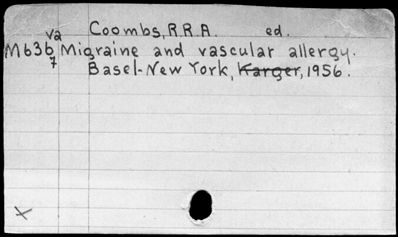 va Coombs, R.R.A. ed.
M63b Migraine and vascular allergy.
7 Basel-New York, Karger, 1956.
X